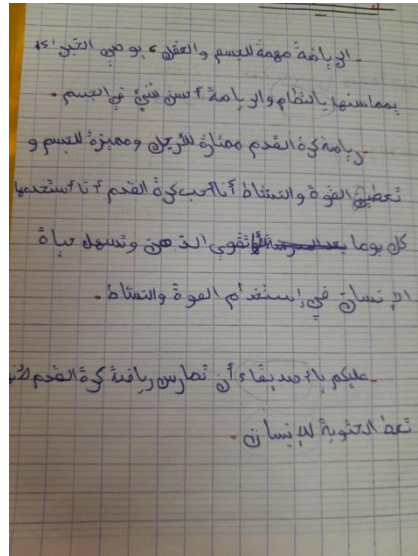 - الرياضة مهمة للجسم والعقل، يوصي الخبراء
بممارستها بالنظام والرياضة أحسن شيء في الجسم.
- رياضة كرة القدم ممتازة للأرجل ومميزة للجسم و
تعطيني القوة والنشاط أنا أحب كرة القدم أنا أستخدمها
كل يوما تقوي الذهن وتسهل حياة
الإنسان في إستخدام القوة والنشاط.
- عليكم يا أصدقاء أن تمارس رياضة كرة القدم
للإنسان.